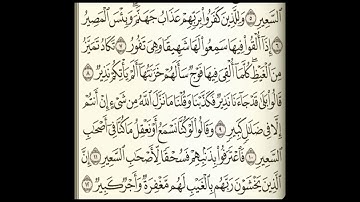 السَّعِيرِ ٥ وَلِلَّذِينَ كَفَرُوا بِرَبِّهِمْ عَذَابُ جَهَنَّمَ وَبِئْسَ الْمَصِيرُ
٦ إِذَا أُلْقُوا فِيهَا سَمِعُوا لَهَا شَهِيقًا وَهِيَ تَفُورُ ٧ تَكَادُ تَمَيَّزُ
مِنَ الْغَيْظِ كُلَّمَا أُلْقِيَ فِيهَا فَوْجٌ سَأَلَهُمْ خَزَنَتُهَا أَلَمْ يَأْتِكُمْ نَذِيرٌ ٨
قَالُوا بَلَى قَدْ جَاءَنَا نَذِيرٌ فَكَذَّبْنَا وَقُلْنَا مَا نَزَّلَ اللَّهُ مِن شَيْءٍ إِنْ أَنتُمْ
إِلَّا فِي ضَلَالٍ كَبِيرٍ ٩ وَقَالُوا لَوْ كُنَّا نَسْمَعُ أَوْ نَعْقِلُ مَا كُنَّا فِي أَصْحَابِ
السَّعِيرِ ١٠ فَاعْتَرَفُوا بِذَنبِهِمْ فَسُحْقًا لِّأَصْحَابِ السَّعِيرِ ١١ إِنَّ
الَّذِينَ يَخْشَوْنَ رَبَّهُم بِالْغَيْبِ لَهُم مَّغْفِرَةٌ وَأَجْرٌ كَبِيرٌ ١٢